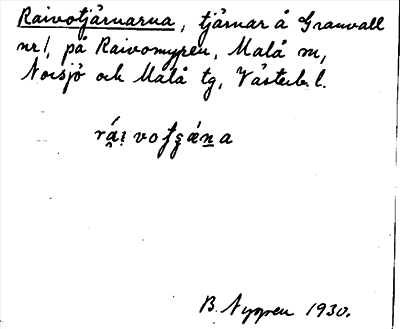 Raivotjärnarna, tjärnar å Granvall
nr 1, på Raivomyren, Malå sn,
Norsjö och Malå tg, Västerb. l.
B. Nygren 1930.